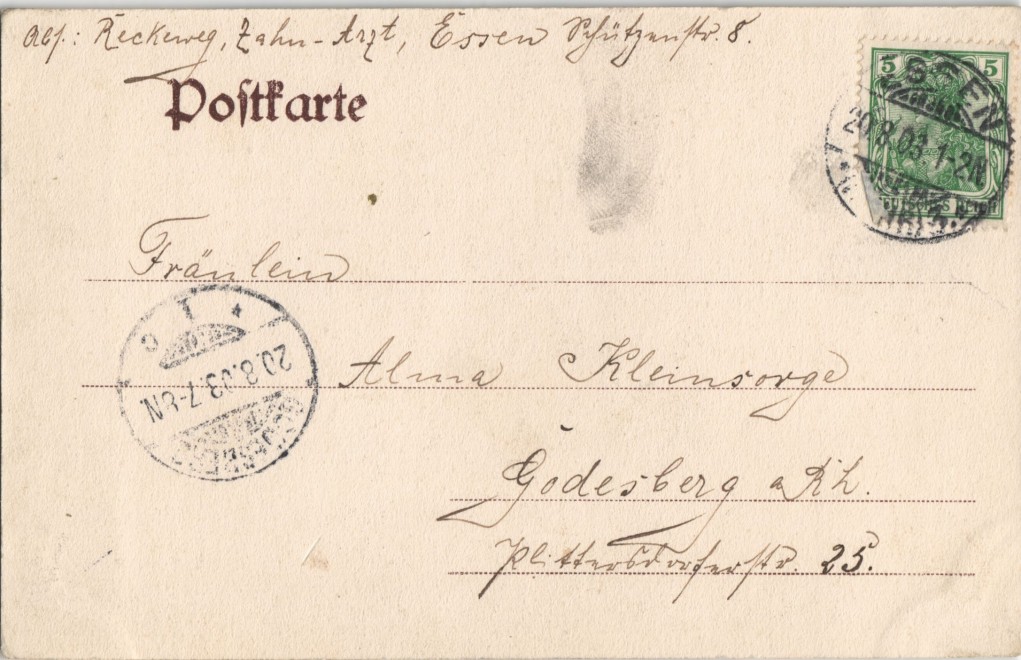 Abs.: Reckeweg, Zahn-Arzt, Essen Schützenstr. 8.
Postkarte
5 5
20.8.03 1-2N
Fräulein
20.8.03.7-8N
Alma Kleinsorge
Godesberg a Rh.
Plittersdorferstr. 25.